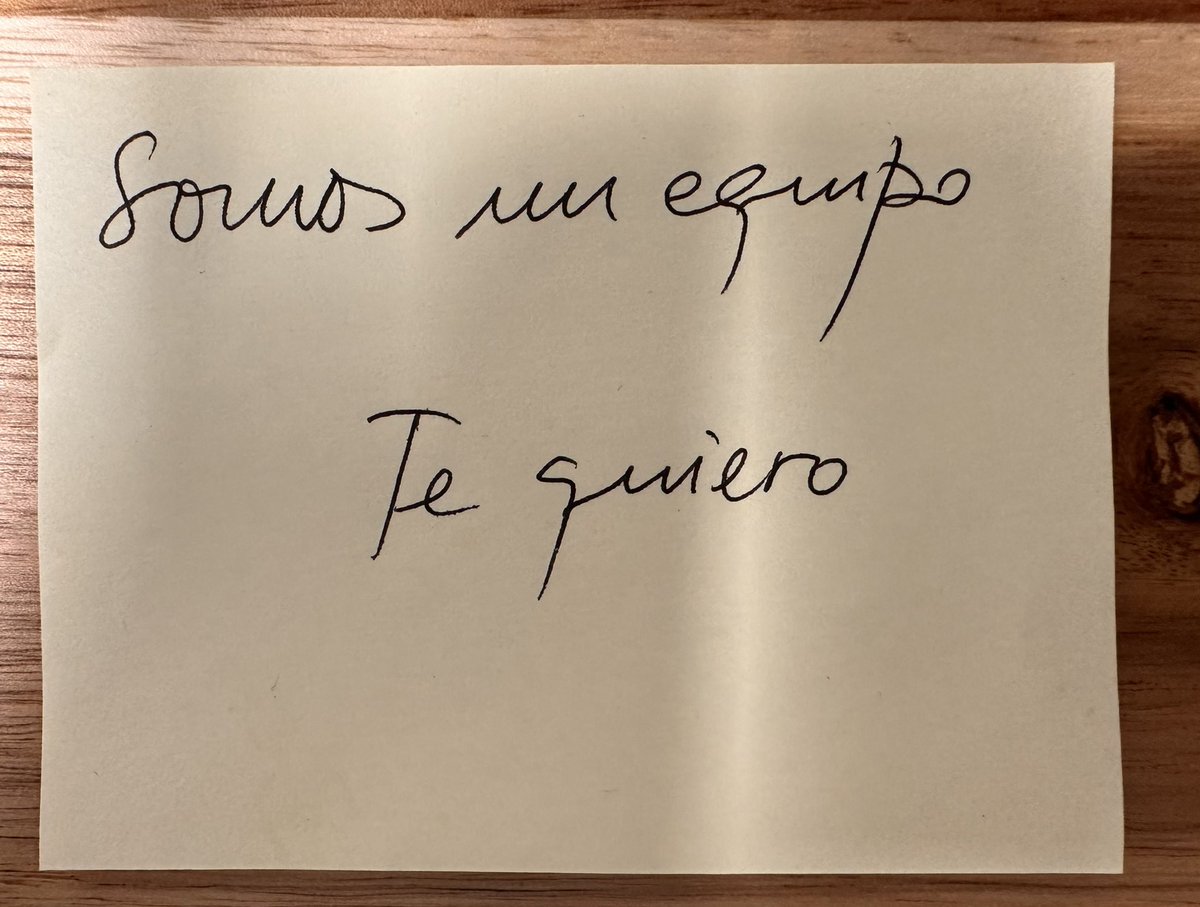 Somos un equipo
Te quiero